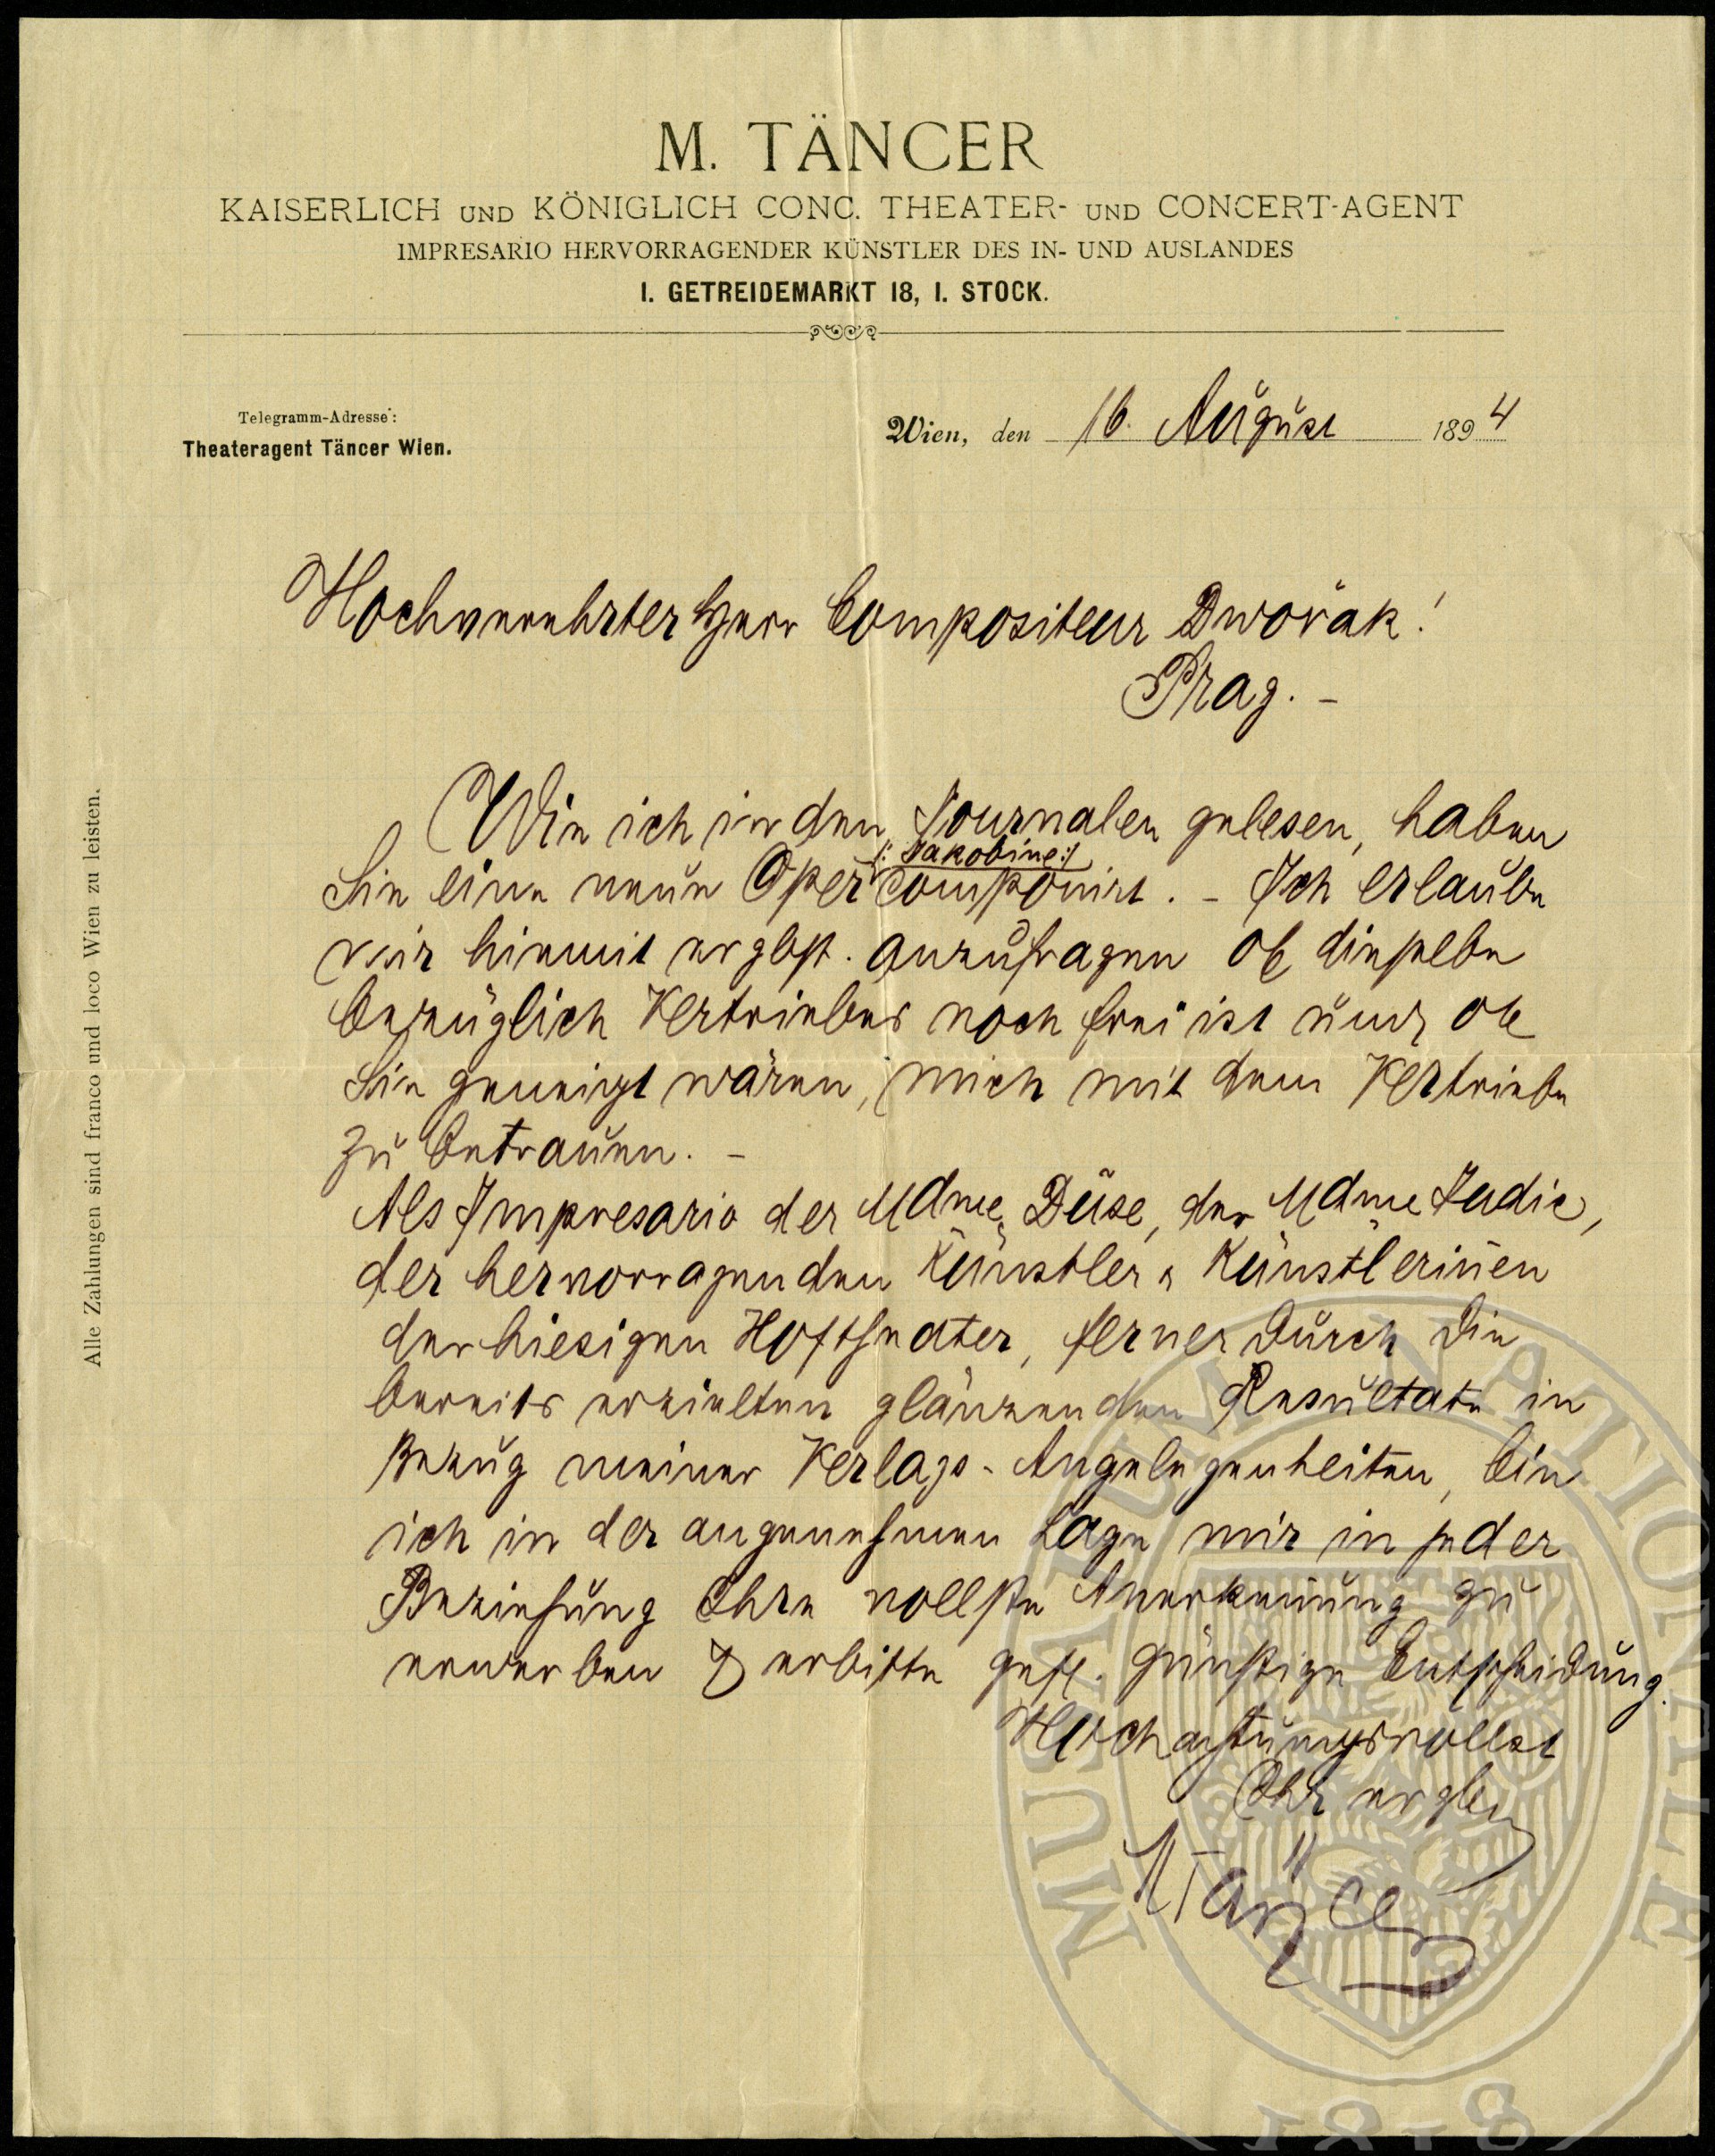 M. TÄNCER
KAISERLICH UND KÖNIGLICH CONC. THEATER- UND CONCERT-AGENT
IMPRESARIO HERVORRAGENDER KÜNSTLER DES IN- UND AUSLANDES
I. GETREIDEMARKT 18, I. STOCK.
Telegramm-Adresse:
Theateragent Täncer Wien.
Wien, den 16. August 1894
Hochverehrter Herr Compositeur Dwořak!
Prag. –
Wie ich in den Journalen gelesen, haben
/: Jakobine :/
Sie eine neue Oper componirt. – Ich erlaube
mir hiemit ergbst. anzufragen ob dieselbe
bezüglich Vertriebes noch frei ist und ob
Sie geneigt wären, mich mit dem Vertriebe
zu betrauen. –
Als Impresario der Mdme Duse, der Mdme Judic,
der hervorragenden Künstler & Künstlerinen
der hiesigen Hoftheater, ferner durch die
bereits erzielten glänzenden Resultate in
Bezug meiner Verlags-Angelegenheiten, bin
ich in der angenehmen Lage mir in jeder
Beziehung Ihre vollste Anerkennung zu
erwerben & erbitte gefl. günstige Entscheidung.
Hochachtungsvollst
Ihr ergbn
MTäncer
Alle Zahlungen sind franco und loco Wien zu leisten.
MUSAEUM NATIONALE
1818